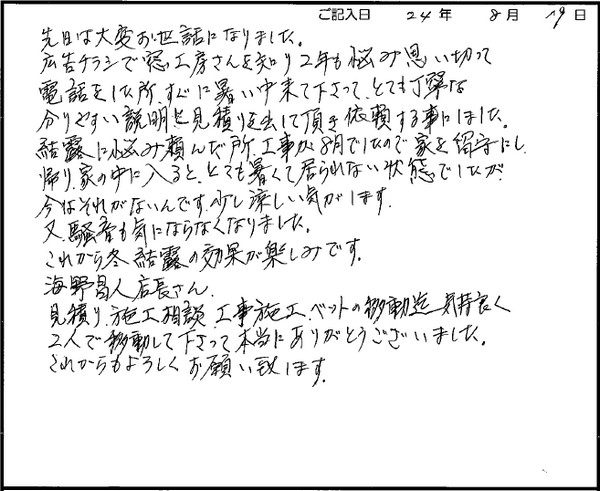 ご記入日 24年 8月 19日
先日は大変お世話になりました。
広告チラシで窓工房さんを知り2年も悩み思い切って
電話をした所、すぐに暑い中来て下さって、とても丁寧な
分りやすい説明と見積りを出して頂き依頼する事にしました。
結露に悩み頼んだ所、工事が8月でしたので家を留守にし、
帰り、家の中に入ると、とても暑くて居られない状態でしたが
今はそれがないんです、少し涼しい気がします。
又、騒音も気にならなくなりました。
これから冬結露の効果が楽しみです。
海野昌人店長さん、
見積り、施工相談、工事施工、ベットの移動迄、気持良く
2人で移動して下さって本当にありがとうございました。
これからもよろしくお願い致します。